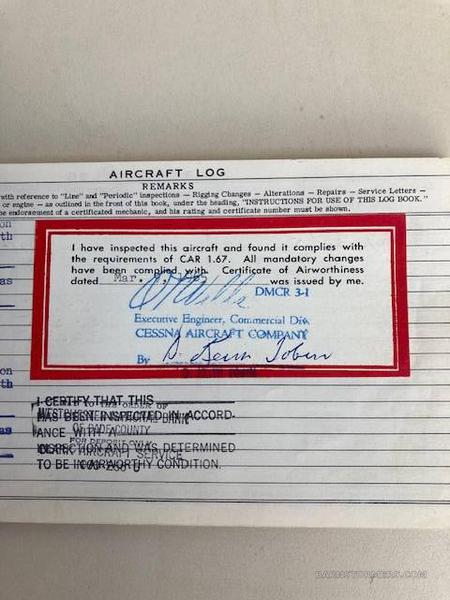 AIRCRAFT LOG
REMARKS
with reference to "Line" and "Periodic" inspections — Rigging Changes — Alterations — Repairs — Service Letters —
or engine — as outlined in the front of this book, under the heading, "INSTRUCTIONS FOR USE OF THIS LOG BOOK."
the endorsement of a certificated mechanic, and his rating and certificate number must be shown.
I have inspected this aircraft and found it complies with
the requirements of CAR 1.67. All mandatory changes
have been complied with. Certificate of Airworthiness
dated Mar. was issued by me.
DMCR 3-1
Executive Engineer, Commercial Div.
CESSNA AIRCRAFT COMPANY
By
on
th
as
on
th
as
I CERTIFY THAT THIS
TO THE ORDER OF
HAS BEEN INSPECTED IN ACCORD-
NATIONAL BANK
ANCE WITH A
OF DADE COUNTY
FOR DEPOSIT ONLY
INSPECTION AND WAS DETERMINED
AIRCRAFT SERVICE
TO BE IN AIRWORTHY CONDITION.
BARNSTORMERS.COM